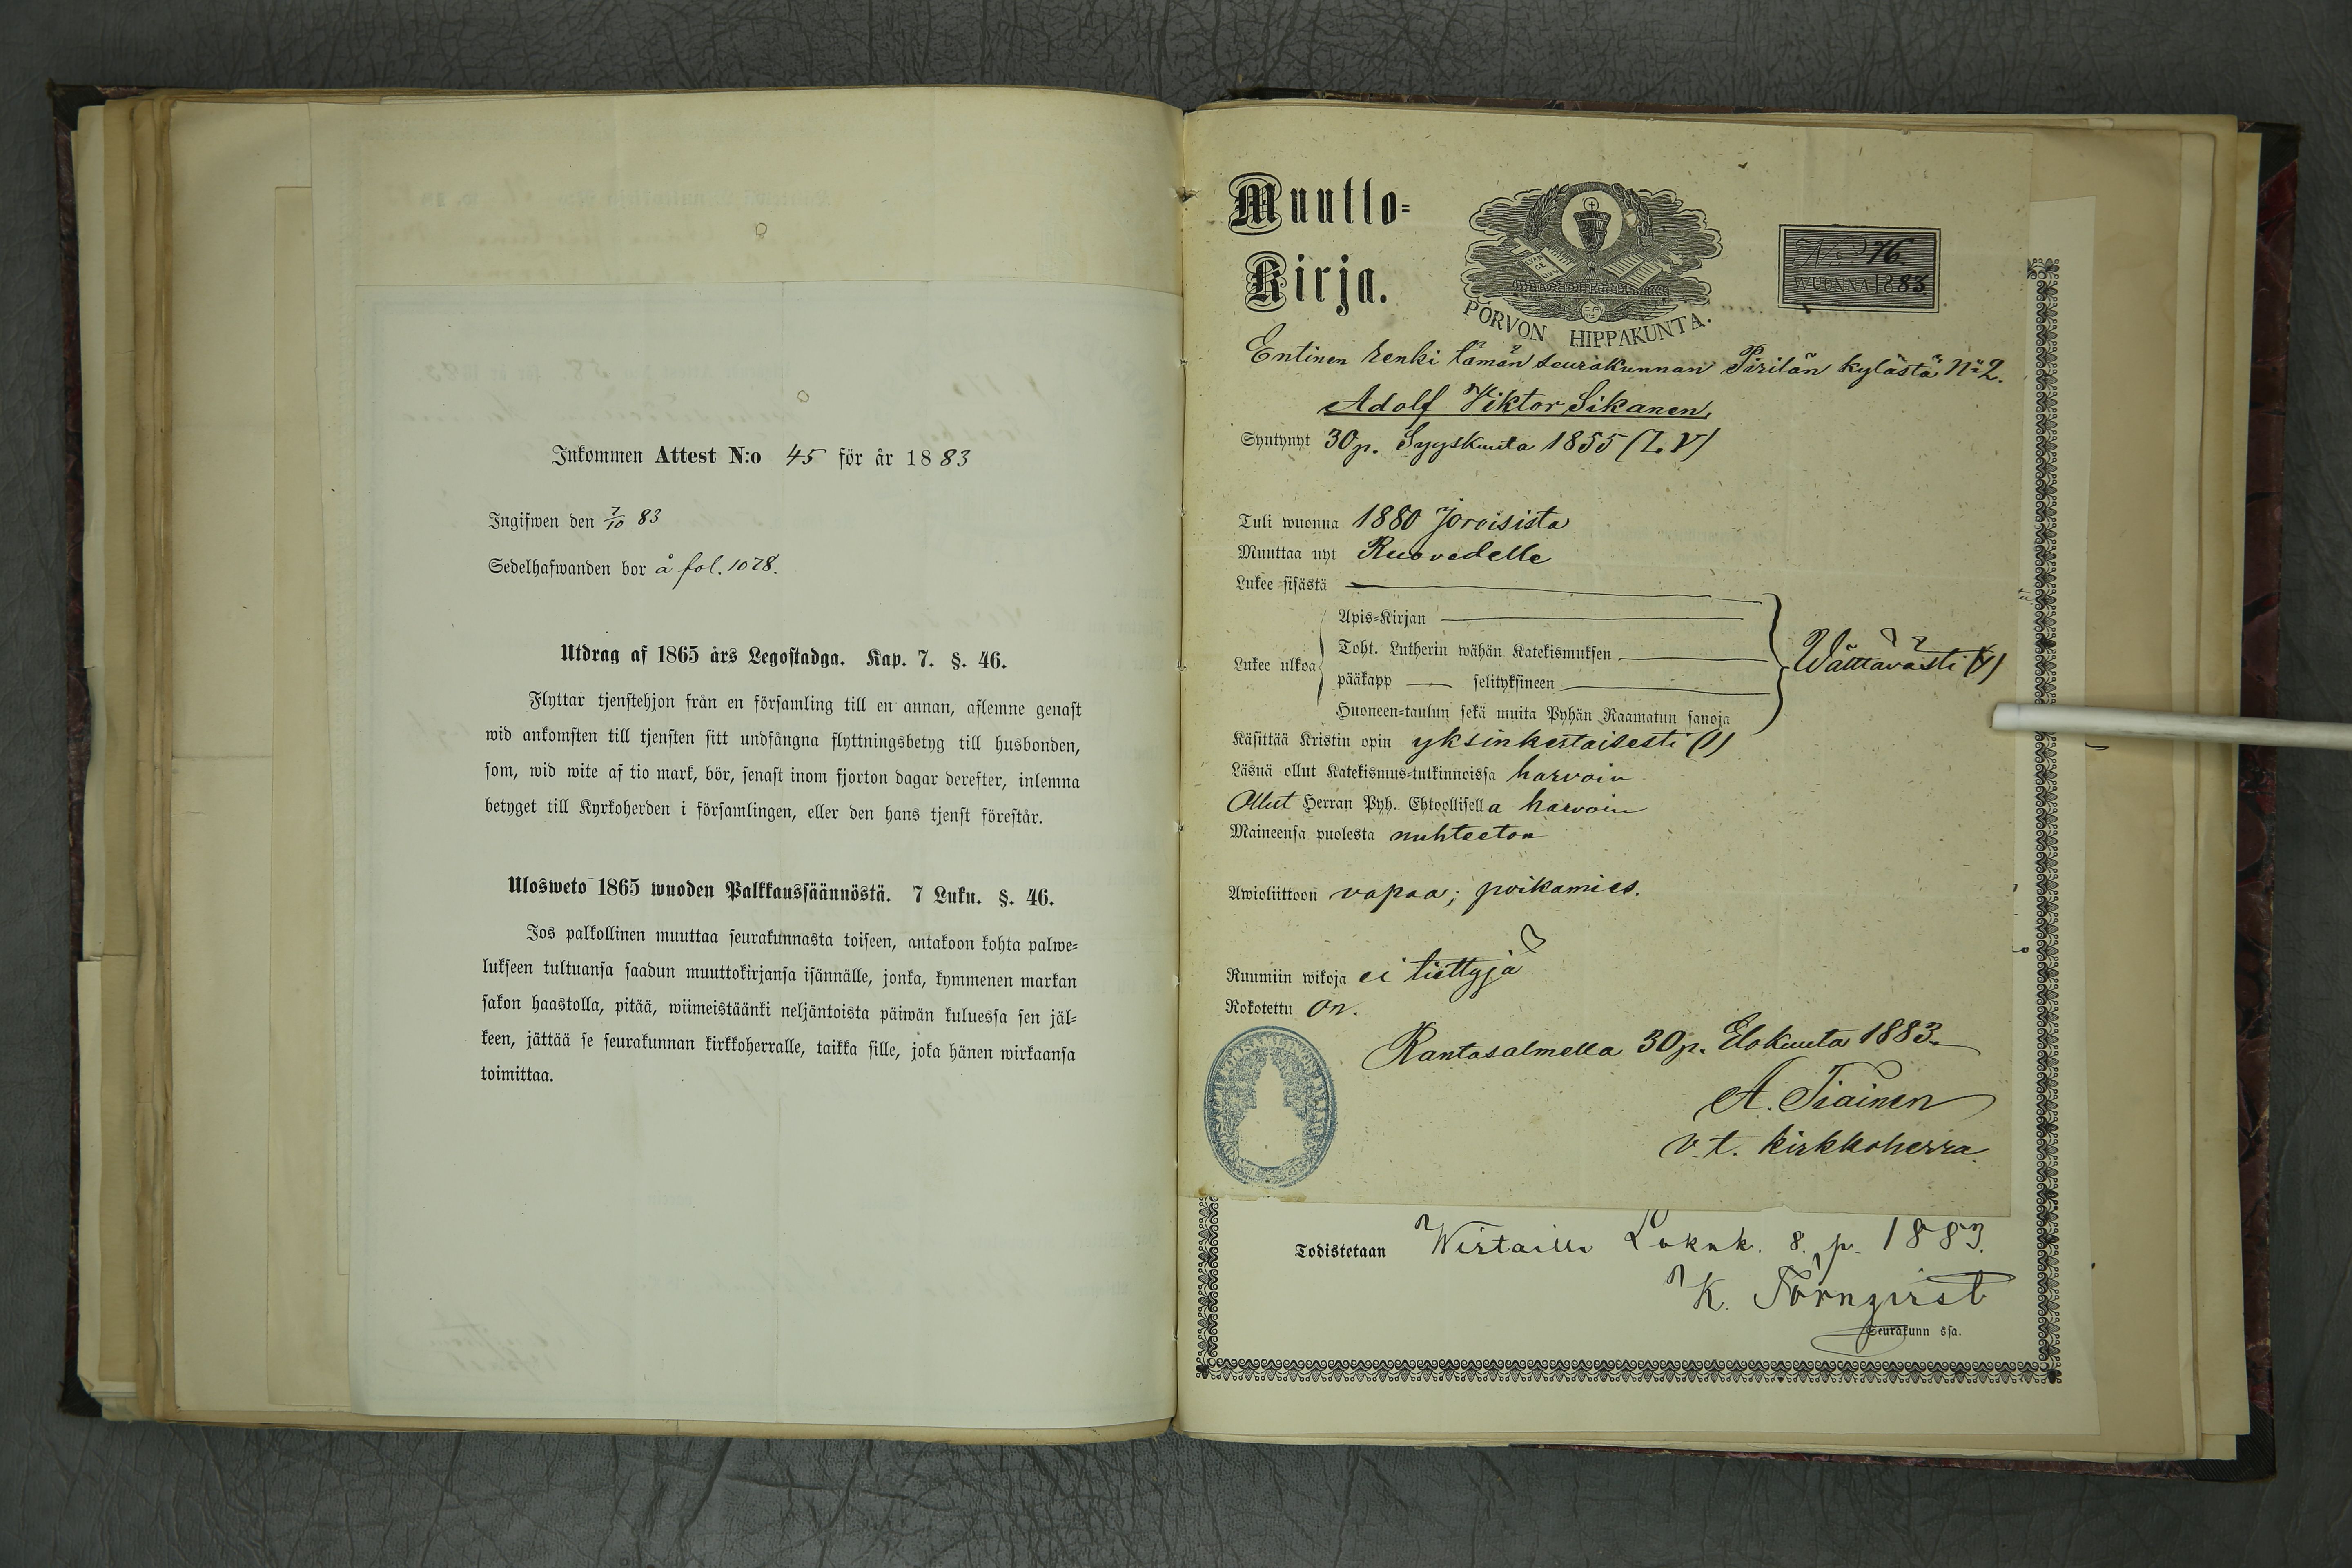 Inkommen Attest N:o 45 för år 1883
Ingifwen den 7/10 83
Sedelhafwanden bor å fol. 1078.
Utdrag af 1865 års Legostadga. Kap. 7. §. 46.
Flyttar tjenstehjon från en församling till en annan, aflemne genast
wid ankomsten till tjensten sitt undfångna flyttningsbetyg till husbonden,
som, wid wite af tio mark, bör, senast inom fjorton dagar derefter, inlemna
betyget till Kyrkoherden i församlingen, eller den hans tjenst förestår.
Ulosweto 1865 wuoden Palkkaussäännöstä. 7 Luku. §. 46.
Jos palkollinen muuttaa seurakunnasta toiseen, antakoon kohta palwe-
lukseen tultuansa saadun muuttokirjansa isännälle, jonka, kymmenen markan
sakon haastolla, pitää, wiimeistäänki neljäntoista päiwän kuluessa sen jäl-
keen, jättää se seurakunnan kirkkoherralle, taikka sille, joka hänen wirkaansa
toimittaa.
Muutto-
Kirja.
PORVON HIPPAKUNTA.
No 76.
WUONNA 1883.
Entinen renki tämän seurakunnan Pirilän kylästä No 2.
Adolf Viktor Sikanen,
Syntynyt 30 p. Syyskuuta 1855 (L.V)
Tuli wuonna 1880 Joroisista
Muuttaa nyt Ruovedelle
Lukee sisästä
Apis-Kirjan
Toht. Lutherin wähän Katekismuksen
Lukee ulkoa
pääkapp selityksineen
Huoneen-taulun sekä muita Pyhän Raamatun sanoja
Wälttävästi
Käsittää Kristin opin yksinkertaisesti (/)
Läsnä ollut Katekismus-tutkinnoissa harvoin
Ollut Herran Pyh. Ehtoollisella harvoin
Maineensa puolesta nuhteeton
Awioliittoon vapaa; poikamies.
Ruumiin wikoja ei tiettyjä
Rokotettu on.
Rantasalmella 30 p. Elokuuta 1883.
A. Tiainen
v.t. kirkkoherra.
Todistetaan Wirtailla Lokak. 8. p. 1883.
K. Törnqvist
Seurakunn ssa.